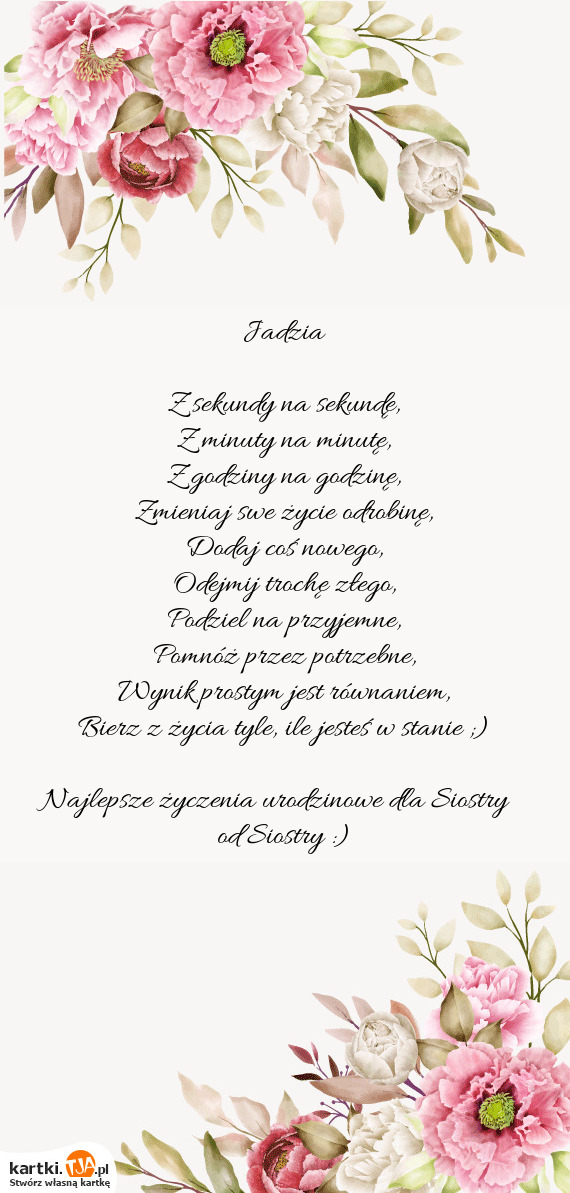 Jadzia
Z sekundy na sekundę,
Z minuty na minutę,
Z godziny na godzinę,
Zmieniaj swe życie odrobinę,
Dodaj coś nowego,
Odejmij trochę złego,
Podziel na przyjemne,
Pomnóż przez potrzebne,
Wynik prostym jest równaniem,
Bierz z życia tyle, ile jesteś w stanie ;)
Najlepsze życzenia urodzinowe dla Siostry
od Siostry :)
kartki.TJA.pl
Stwórz własną kartkę